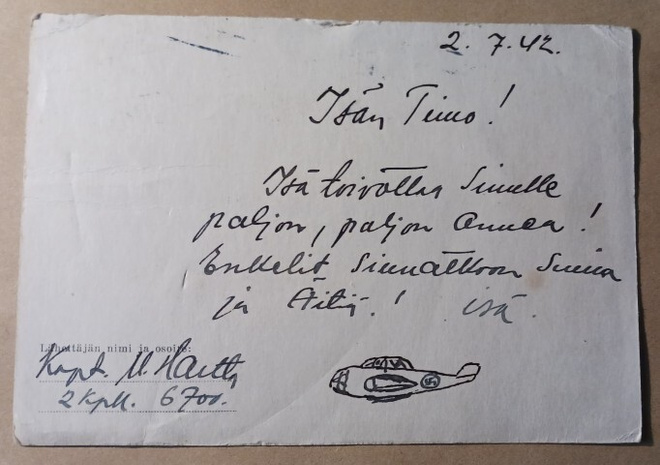 2. 7.42.
Isän Timo!
Isä toivottaa Sinulle
paljon, paljon onnea!
Enkelit siunatkoon Sinua
ja Äitiä! isä.
Lähettäjän nimi ja osoite:
Kapt.
2 Kpk. 6700.